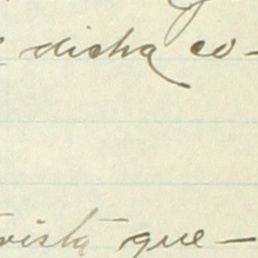 dicha co-
vista que-